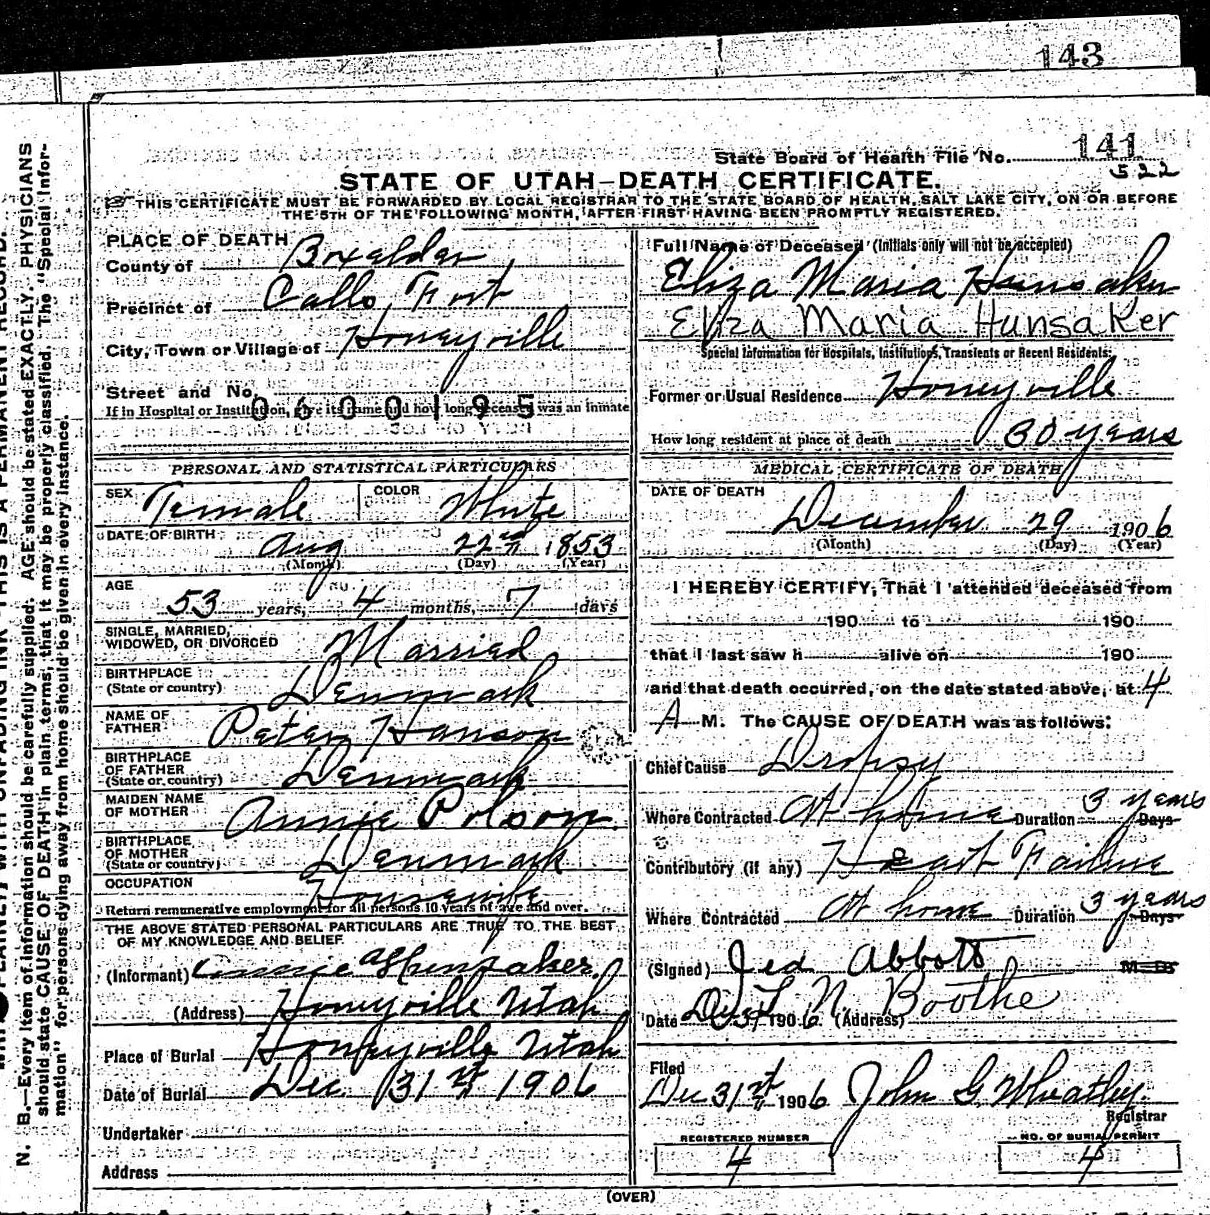 143
State Board of Health File No. 141
522
STATE OF UTAH—DEATH CERTIFICATE.
THIS CERTIFICATE MUST BE FORWARDED BY LOCAL REGISTRAR TO THE STATE BOARD OF HEALTH, SALT LAKE CITY, ON OR BEFORE
THE 5TH OF THE FOLLOWING MONTH, AFTER FIRST HAVING BEEN PROMPTLY REGISTERED.
PLACE OF DEATH
County of Boxelder
Precinct of Calls Fort
City, Town or Village of Honeyville
Street and No.
0600195
If in Hospital or Institution, give its name and how long deceased was an inmate
PERSONAL AND STATISTICAL PARTICULARS
SEX Female COLOR White
DATE OF BIRTH Aug 22nd 1853
(Month) (Day) (Year)
AGE
53 years, 4 months, 7 days
SINGLE, MARRIED,
WIDOWED, OR DIVORCED Married
BIRTHPLACE
(State or country) Denmark
NAME OF
FATHER Peter Hanson
BIRTHPLACE
OF FATHER
(State or country) Denmark
MAIDEN NAME
OF MOTHER Annie Polson
BIRTHPLACE
OF MOTHER
(State or country) Denmark
OCCUPATION Housewife
Return remunerative employment for all persons 10 years of age and over.
THE ABOVE STATED PERSONAL PARTICULARS ARE TRUE TO THE BEST
OF MY KNOWLEDGE AND BELIEF
(Informant) Hunsaker
(Address) Honeyville Utah
Place of Burial Honeyville Utah
Date of Burial Dec. 31st 1906
Undertaker
Address
Full Name of Deceased (Initials only will not be accepted)
Eliza Maria Hunsaker
Eliza Maria Hunsaker
Special Information for Hospitals, Institutions, Transients or Recent Residents:
Former or Usual Residence Honeyville
How long resident at place of death 30 years
MEDICAL CERTIFICATE OF DEATH
DATE OF DEATH
December 29 1906
(Month) (Day) (Year)
I HEREBY CERTIFY, That I attended deceased from
190 to 190
that I last saw h alive on 190
and that death occurred, on the date stated above, at 4
A M. The CAUSE OF DEATH was as follows:
Chief Cause Dropsy
Where Contracted At home Duration 3 years Days
Contributory (if any) Heart Failure
Where Contracted At home Duration 3 years Days
(Signed) Jed Abbott M. D.
Date 1906 (Address) N. Boothe
Filed
Dec 31st 1906 John G Wheatley
Registrar
REGISTERED NUMBER
4
NO. OF BURIAL PERMIT
4
(OVER)
N. B.—Every item of information should be carefully supplied. AGE should be stated EXACTLY. PHYSICIANS
should state CAUSE OF DEATH in plain terms, that it may be properly classified. The "Special Infor-
mation" for persons dying away from home should be given in every instance.